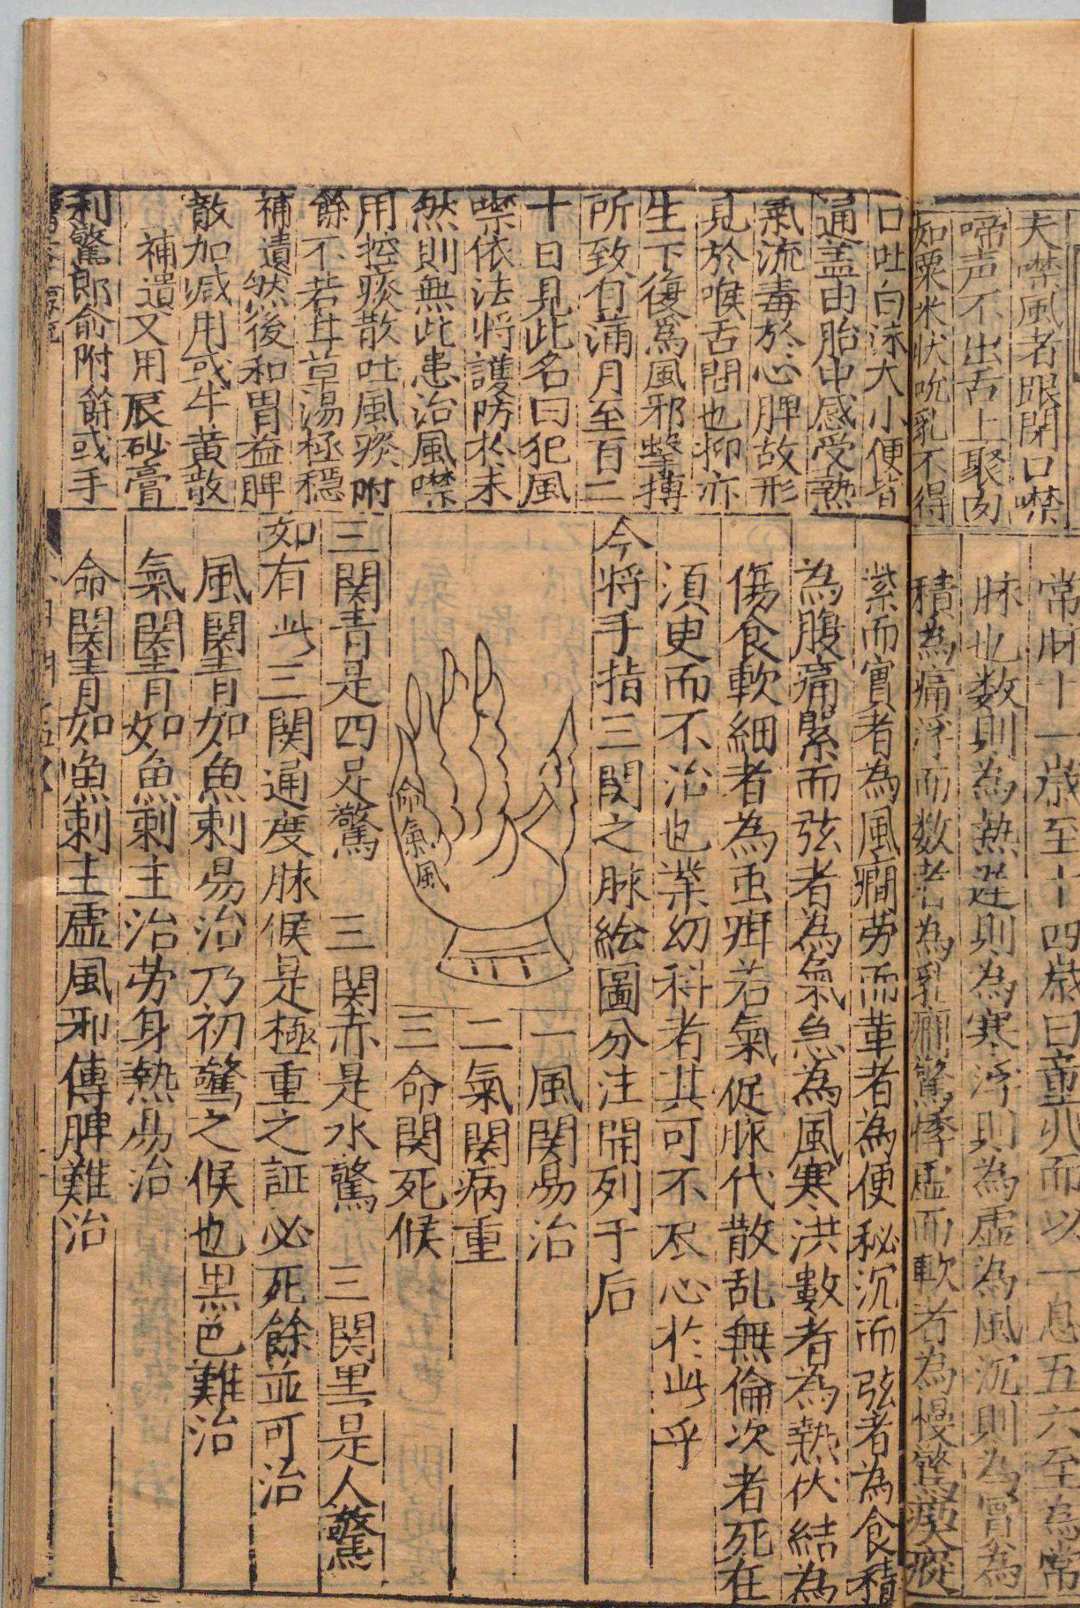 夫噤風者眼閉口噤
啼声不出舌上聚肉
如粟米状吮乳不得
口吐白沫大小便皆
通盖由胎中感受熱
氣流毒於心脾故形
見於喉舌間也抑亦
生下復為風邪擊搏
所致有蒲月至百二
十日見此名曰犯風
噤依法将護防於未
然則無此患治風噤
用控痰散吐風痰附
餘不若甘草湯極穏
補遺然後和胃益脾
散加减用或牛黄散
補遺又用辰砂膏
利驚郎俞附餘或手
常脉十一歳至十四歳曰童兆而以一息五六至為常
脉也数則為熱遅則為寒浮則為虚為風沉則為實為
積為痛浮而数者為乳癇驚悸虚而軟者為慢驚瘈瘲
紧而實者為風癇労而革者為便秘沉而弦者為食積
為腹痛緊而弦者為氣急為風寒洪數者為熱伏結為
傷食軟細者為虫疳若氣促脉代散乱無倫次者死在
須臾而不治也業幼科者其可不尽心於此乎
今将手指三関之脉絵圖分注開列于后
命
氣
風
一風関易治
二氣関病重
三命関死候
三関青是四足驚　三関赤是水驚　三関黒是人驚
如有此三関通度脉候是極重之証必死餘並可治
風関青如魚刺易治乃初驚之候也黒色難治
氣関青如魚刺主治労身熱易治
命関青如魚刺主虚風邪傳脾難治